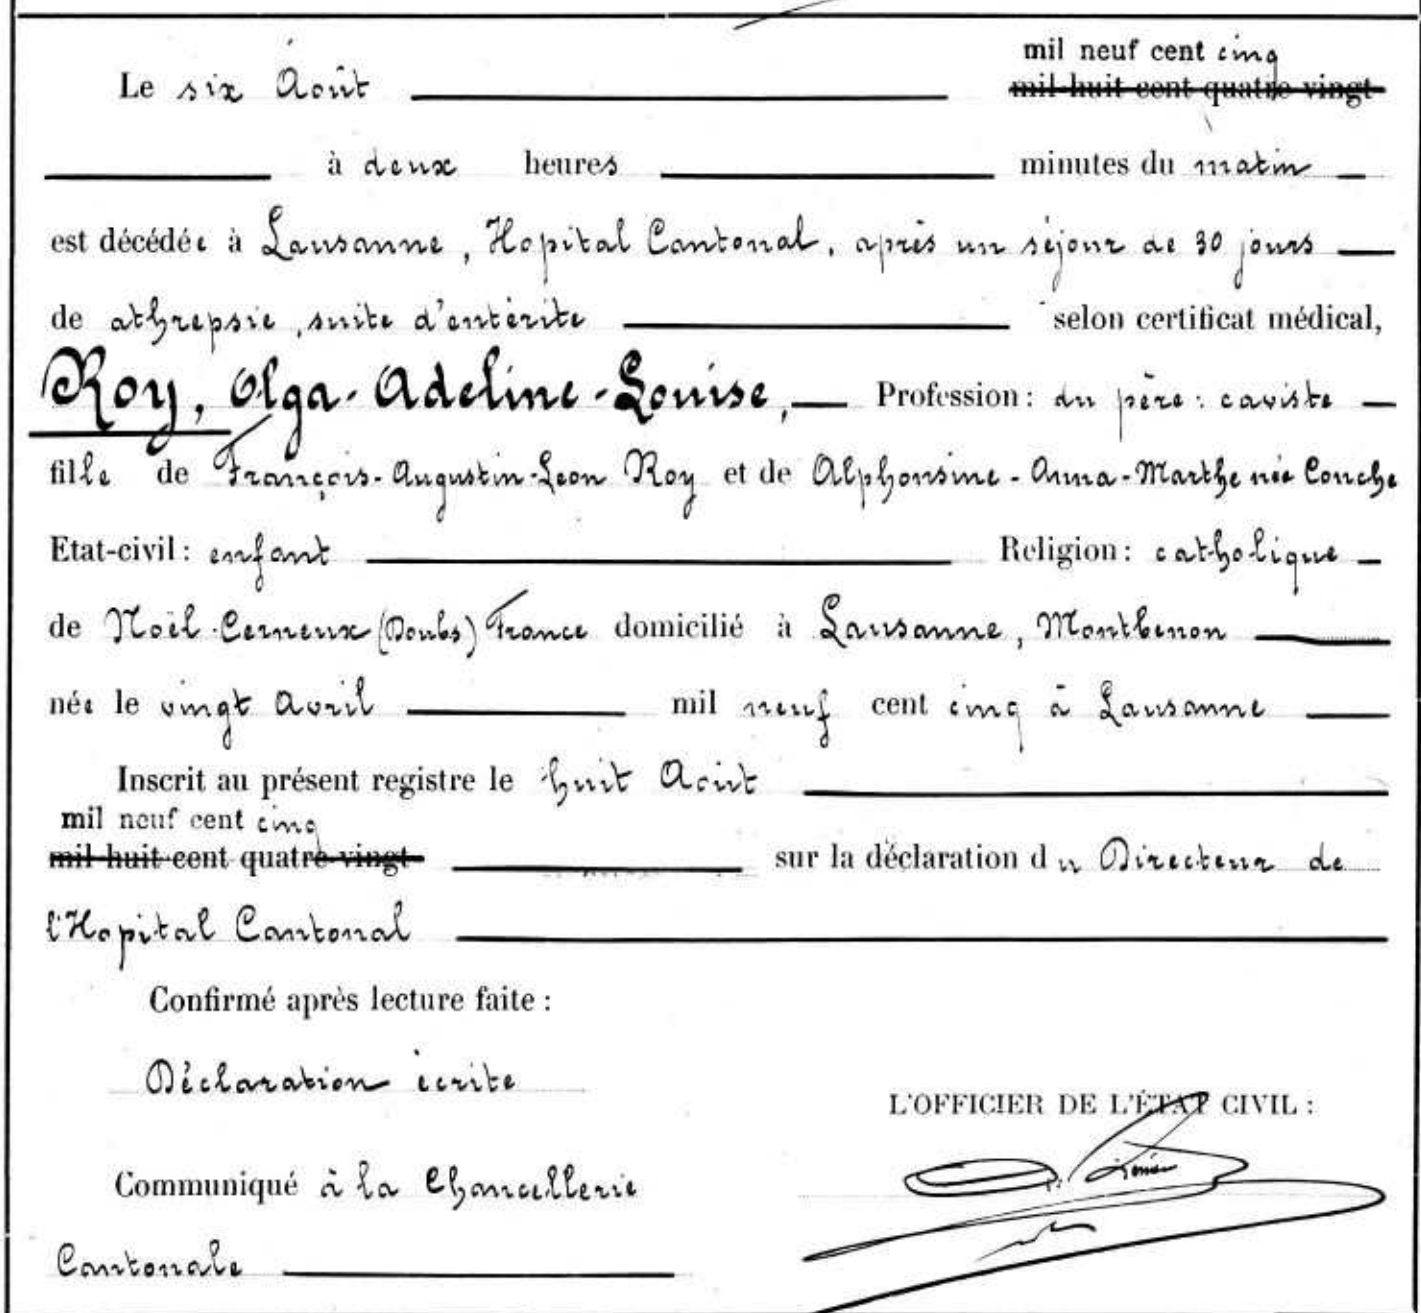 mil neuf cent cinq
Le six Août mil huit cent quatre-vingt
à deux heures minutes du matin
est décédée à Lausanne, Hopital Cantonal, après un séjour de 30 jours
de athrepsie, suite d'entérite selon certificat médical,
Roy, Olga-Adeline-Louise, Profession: du père: caviste
fille de François-Augustin-Leon Roy et de Alphonsine-Anna-Marthe née Conche
Etat-civil: enfant Religion: catholique
de Noël-Cerneux (Doubs) France domicilié à Lausanne, Montbenon
née le vingt Avril mil neuf cent cinq à Lausanne
Inscrit au présent registre le huit Août
mil neuf cent cinq
mil huit cent quatre-vingt sur la déclaration du Directeur de
l'Hopital Cantonal
Confirmé après lecture faite:
Déclaration écrite
L'OFFICIER DE L'ÉTAT CIVIL:
Communiqué à la Chancellerie
Cantonale